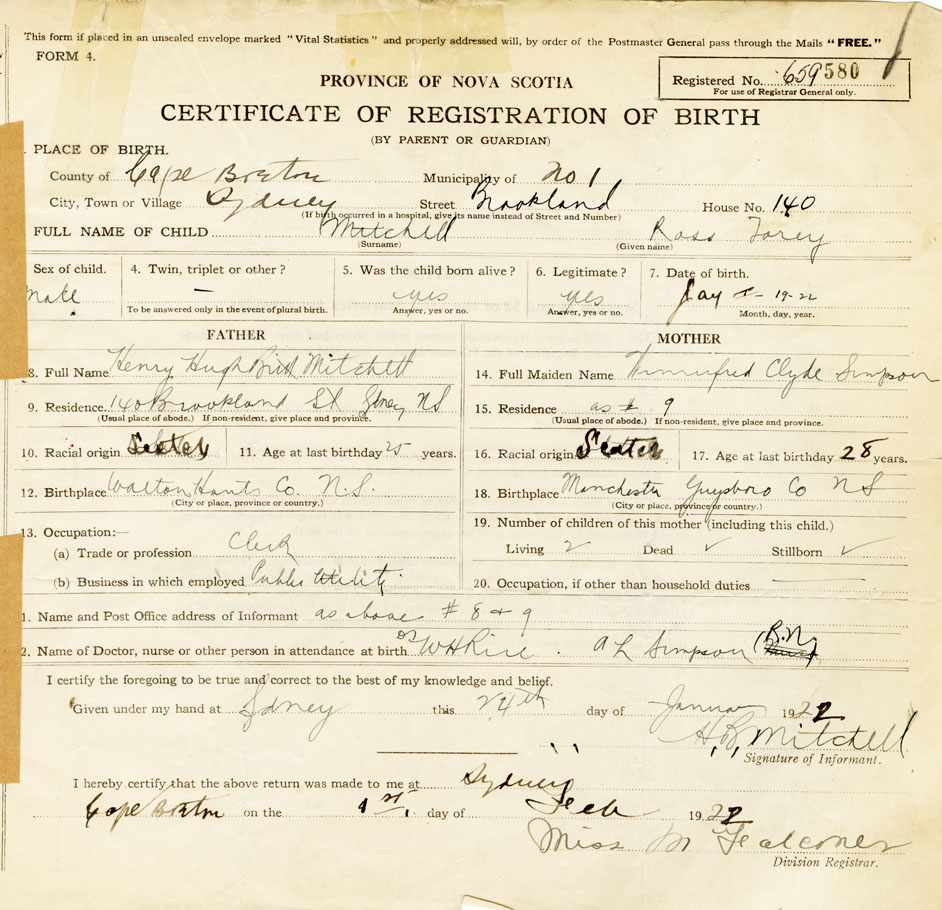 This form if placed in an unsealed envelope marked "Vital Statistics" and properly addressed will, by order of the Postmaster General pass through the Mails "FREE."
FORM 4.
PROVINCE OF NOVA SCOTIA
Registered No. 659580
For use of Registrar General only.
CERTIFICATE OF REGISTRATION OF BIRTH
(BY PARENT OR GUARDIAN)
. PLACE OF BIRTH.
County of Cape Breton Municipality of No 1
City, Town or Village Sydney Street Brookland House No. 140
(If birth occurred in a hospital, give its name instead of Street and Number)
FULL NAME OF CHILD Mitchell Ross
(Surname) (Given name)
Sex of child. 4. Twin, triplet or other? 5. Was the child born alive? 6. Legitimate? 7. Date of birth.
male — yes yes Jany 19-22
To be answered only in the event of plural birth. Answer, yes or no. Answer, yes or no. Month, day, year.
FATHER MOTHER
8. Full Name Henry Hugh Mitchell
14. Full Maiden Name Winnifred Clyde Simpson
9. Residence 140 Brookland St Sydney NS
(Usual place of abode.) If non-resident, give place and province.
15. Residence as # 9
(Usual place of abode.) If non-resident, give place and province.
10. Racial origin Scotch 11. Age at last birthday 25 years.
16. Racial origin Scotch 17. Age at last birthday 28 years.
12. Birthplace Walton Hants Co. N.S.
(City or place, province or country.)
18. Birthplace Manchester Guysboro Co NS
(City or place, province or country.)
13. Occupation:—
(a) Trade or profession Clerk
(b) Business in which employed Public Utility
19. Number of children of this mother (including this child.)
Living 2 Dead ✓ Stillborn ✓
20. Occupation, if other than household duties —
1. Name and Post Office address of Informant as above # 8 + 9
2. Name of Doctor, nurse or other person in attendance at birth W H Rice. A L Simpson (R.N.)
I certify the foregoing to be true and correct to the best of my knowledge and belief.
Given under my hand at Sydney this 24th day of January 1922
H. B. Mitchell
Signature of Informant.
I hereby certify that the above return was made to me at Sydney
Cape Breton on the 1st. day of Feb 1922
Miss M Falconer
Division Registrar.